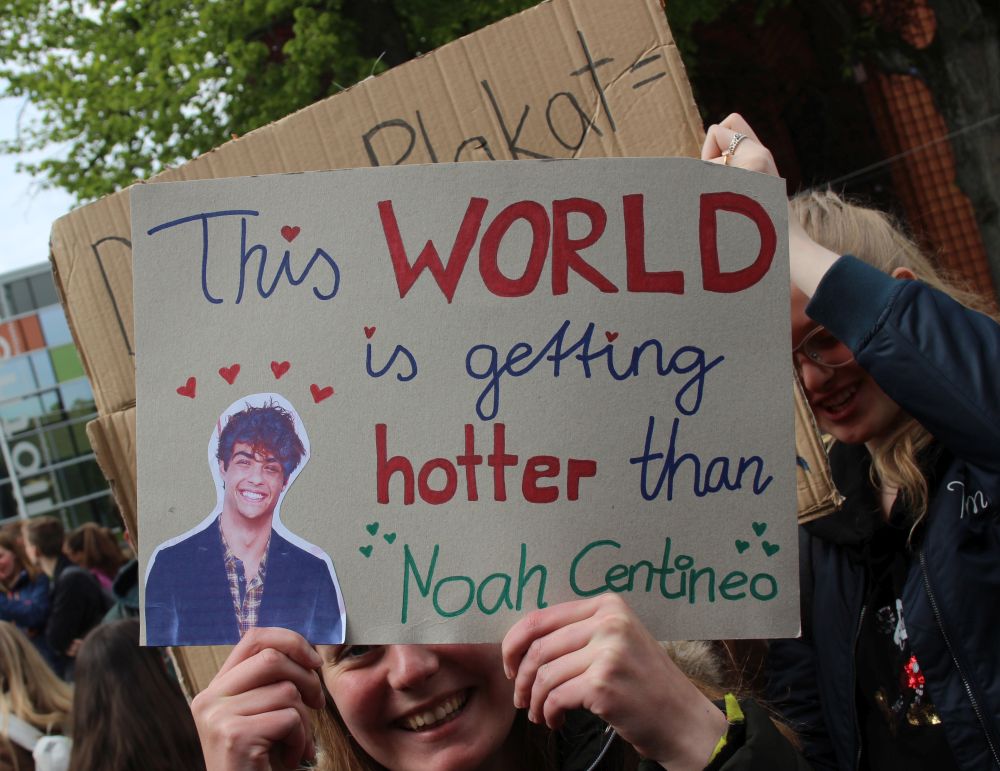 Plakat =
This WORLD
is getting
hotter than
Noah Centineo